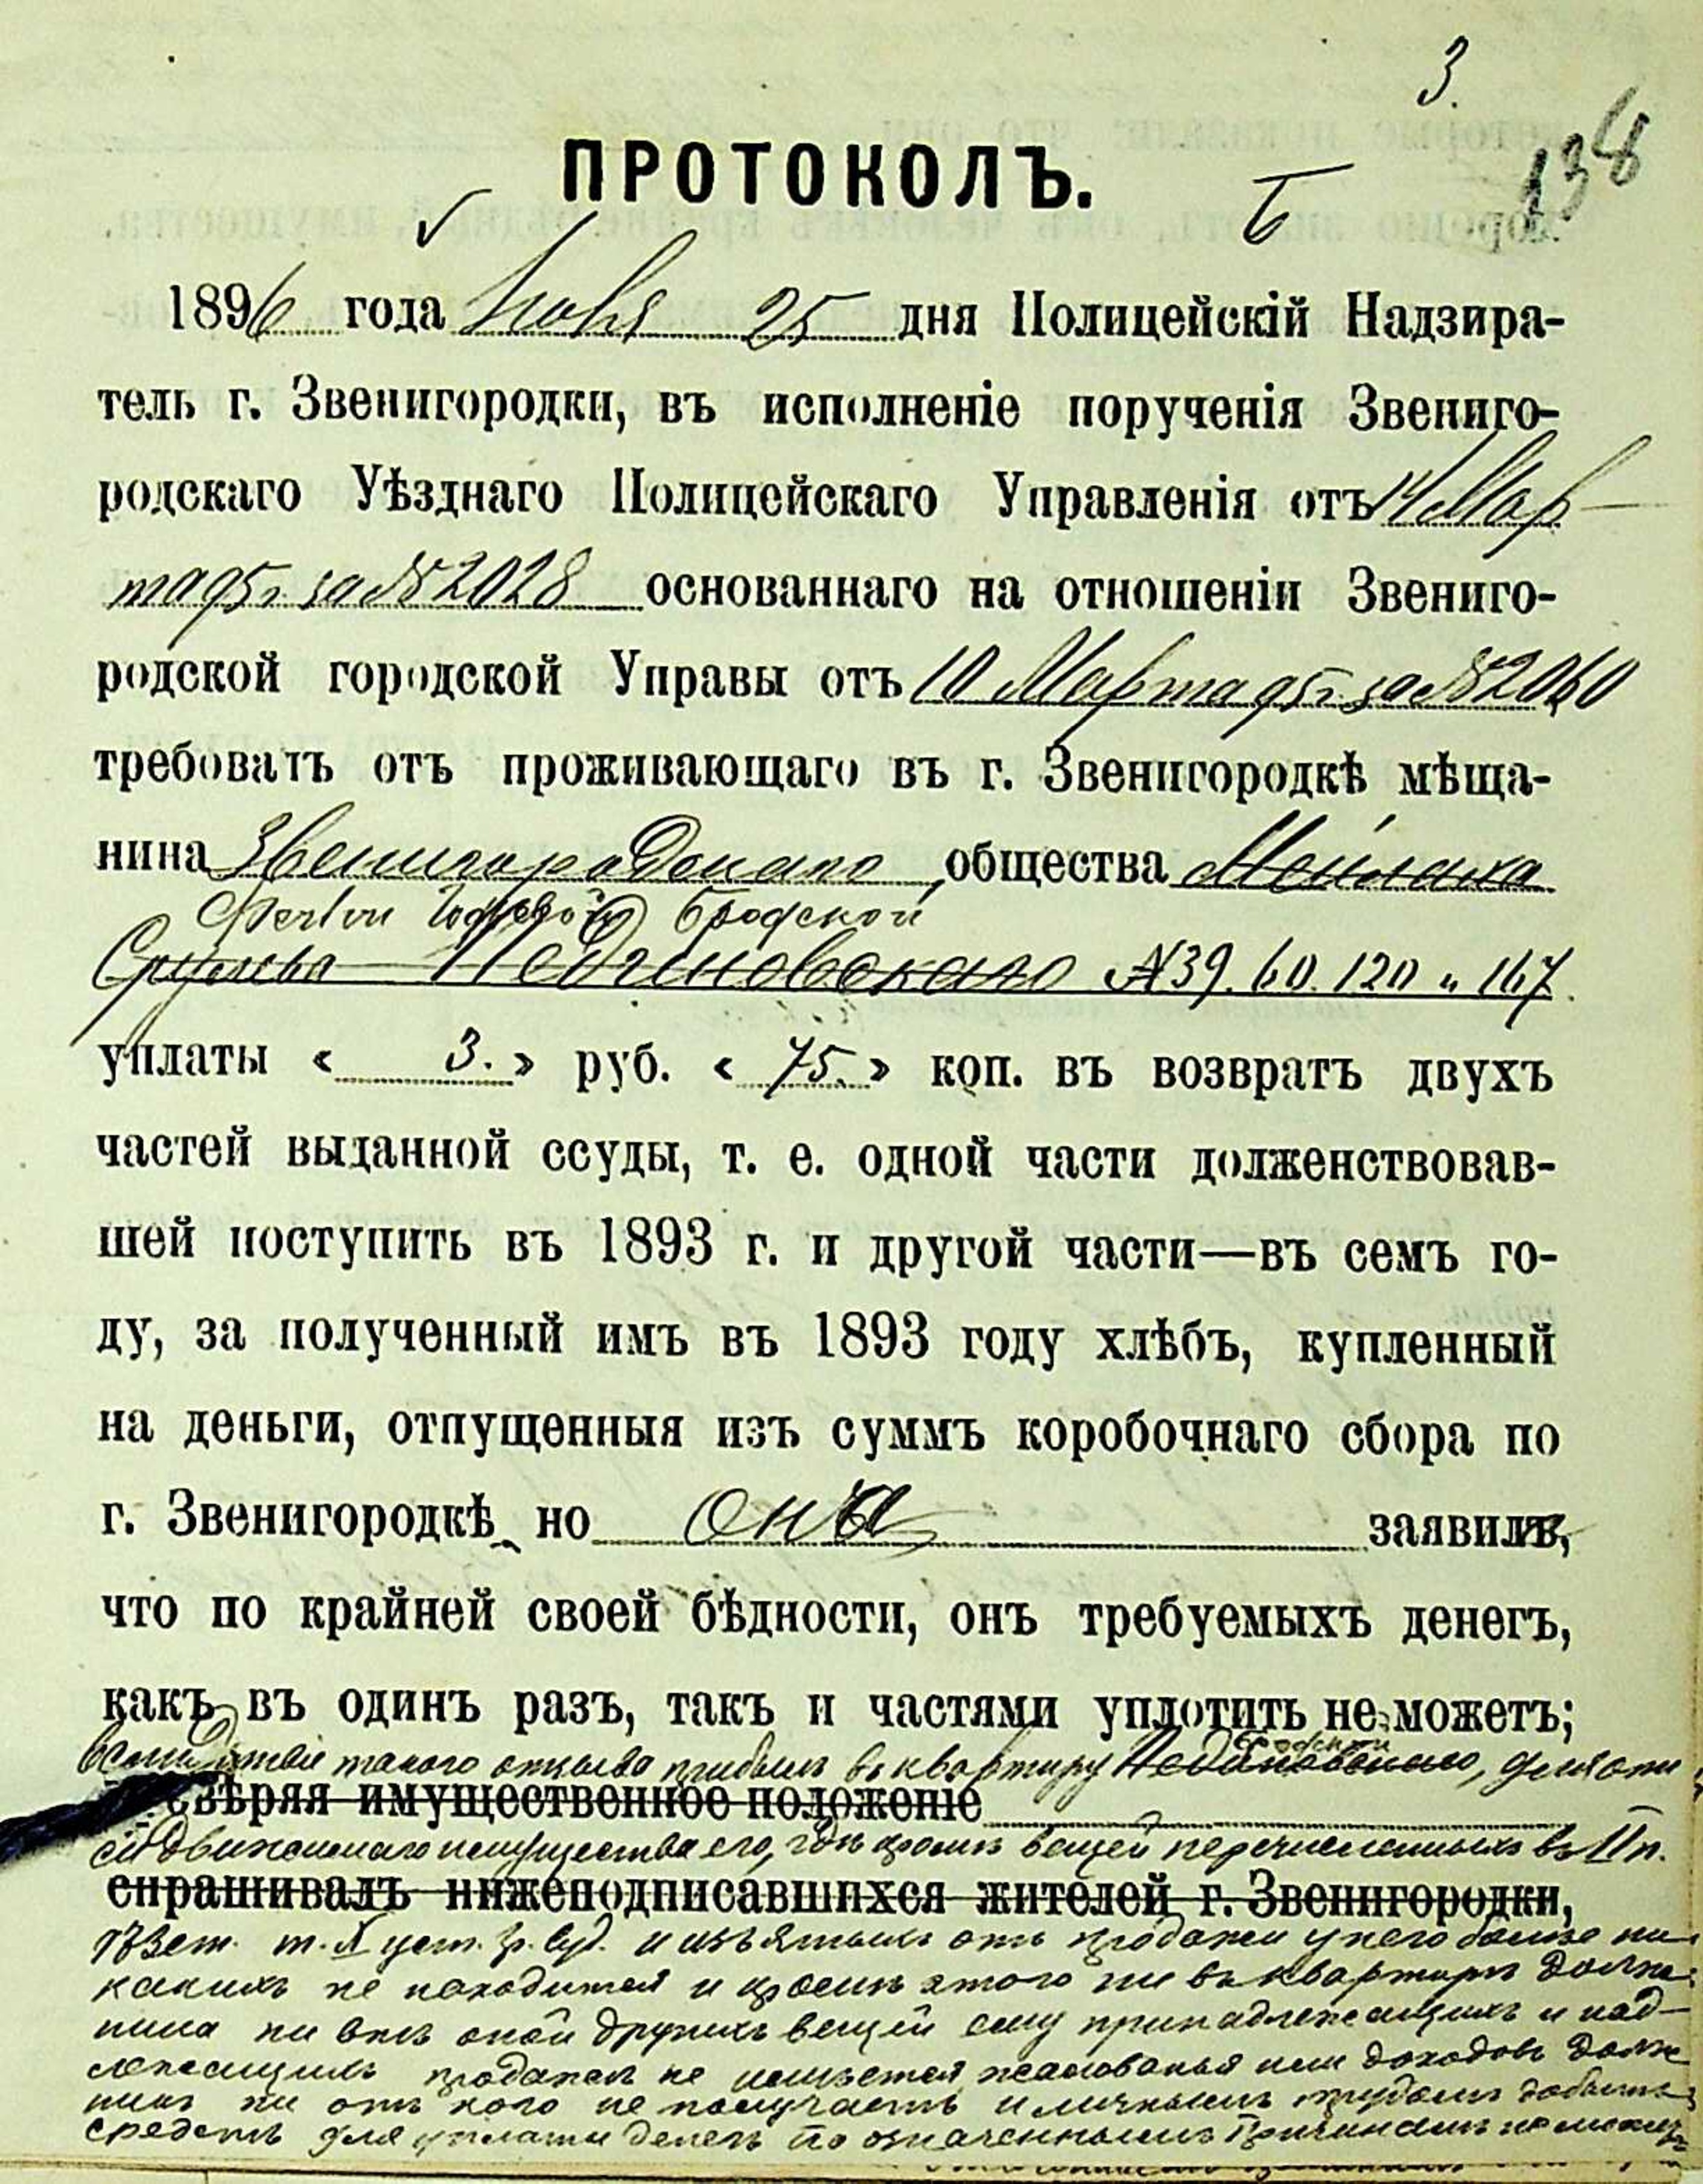 3.
138
ПРОТОКОЛЪ.
1896 года Ноября 25 дня Полицейскій Надзира-
тель г. Звенигородки, въ исполненіе порученія Звениго-
родскаго Уѣзднаго Полицейскаго Управленія отъ 14 Мар-
та 95 г. за № 2028 основаннаго на отношеніи Звениго-
родской городской Управы отъ 10 Марта 95 г. за № 2060
требовать отъ проживающаго въ г. Звенигородкѣ мѣща-
нина Звенигородскаго общества Мейлаха
Бродской
Сруллева №39. 60. 120 и 167
уплаты « 3. » руб. « 75. » коп. въ возвратъ двухъ
частей выданной ссуды, т. е. одной части долженствовав-
шей поступить въ 1893 г. и другой части—въ семъ го-
ду, за полученный имъ въ 1893 году хлѣбъ, купленный
на деньги, отпущенныя изъ суммъ коробочнаго сбора по
г. Звенигородкѣ, но она заявилъ,
что по крайней своей бѣдности, онъ требуемыхъ денегъ,
какъ въ одинъ разъ, такъ и частями уплотить не можетъ;
Бродской
вслѣдствіе такого отзыва прибылъ въ квартиру для опи
свѣряя имущественное положеніе
си движимаго имущества его, гдѣ кромѣ вещей перечисленныхъ въ II п.
спрашивалъ нижеподписавшихся жителей г. Звенигородки,
973 ст. т. X уст. гр. суд. и изъятыхъ отъ продажи у него болѣе ни
какихъ не находится и кромѣ этого ни въ квартирѣ долж
ника ни внѣ оной другихъ вещей ему принадлежащихъ и под-
лежащихъ продажѣ не имѣется жалованья или доходовъ долж
никъ ни отъ кого не получаетъ и личнымъ трудомъ добыть
средствъ для уплаты денегъ по означеннымъ причинамъ не можетъ